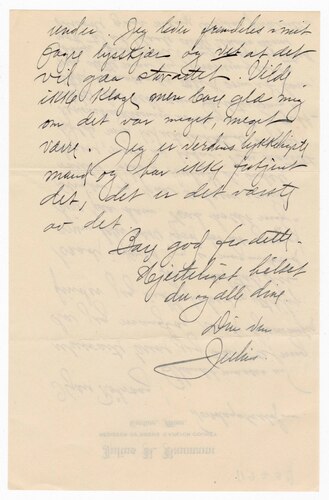 under. Jeg lever fremdeles i mit
fagre lysskjær og vet at det
vil gaa  Vilde
ikke klage men bare glæ mig
om det var meget meget
værre. Jeg er verdens lykkeligste
mand og har ikke fortjent
det, det er det værste
av det
Borg god for dette.
Hjerteligst hilset
du og alle dine
Din ven
Julius.